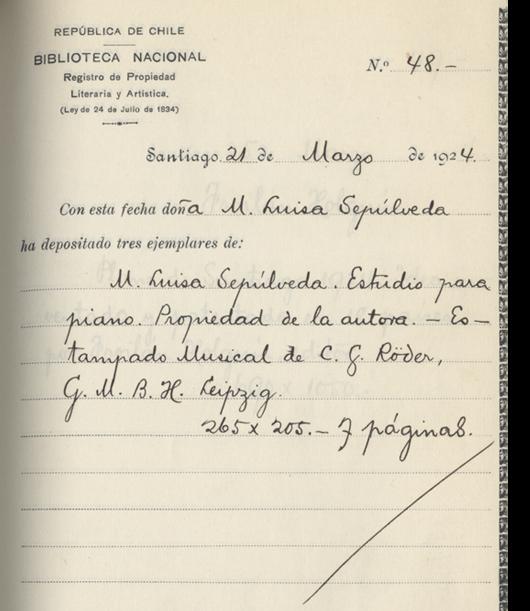 REPÚBLICA DE CHILE
BIBLIOTECA NACIONAL
Registro de Propiedad
Literaria y Artistica.
(Ley de 24 de Julio de 1834)
N.º 48.-
Santiago 21 de Marzo de 1924.
Con esta fecha doña M. Luisa Sepúlveda
ha depositado tres ejemplares de:
M. Luisa Sepúlveda. Estudio para
piano. Propiedad de la autora. - Es-
tampado Musical de C. G. Röder,
G. M. B. H. Leipzig.
265 x 205.- 7 páginas.